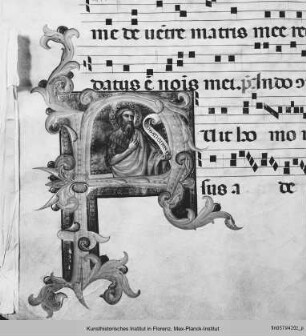 me de uẽtre matris mee
datus ẽ nois mei. p̃s. In do
uit ho mo
sus a de
Kunsthistorisches Institut in Florenz, Max-Planck-Institut